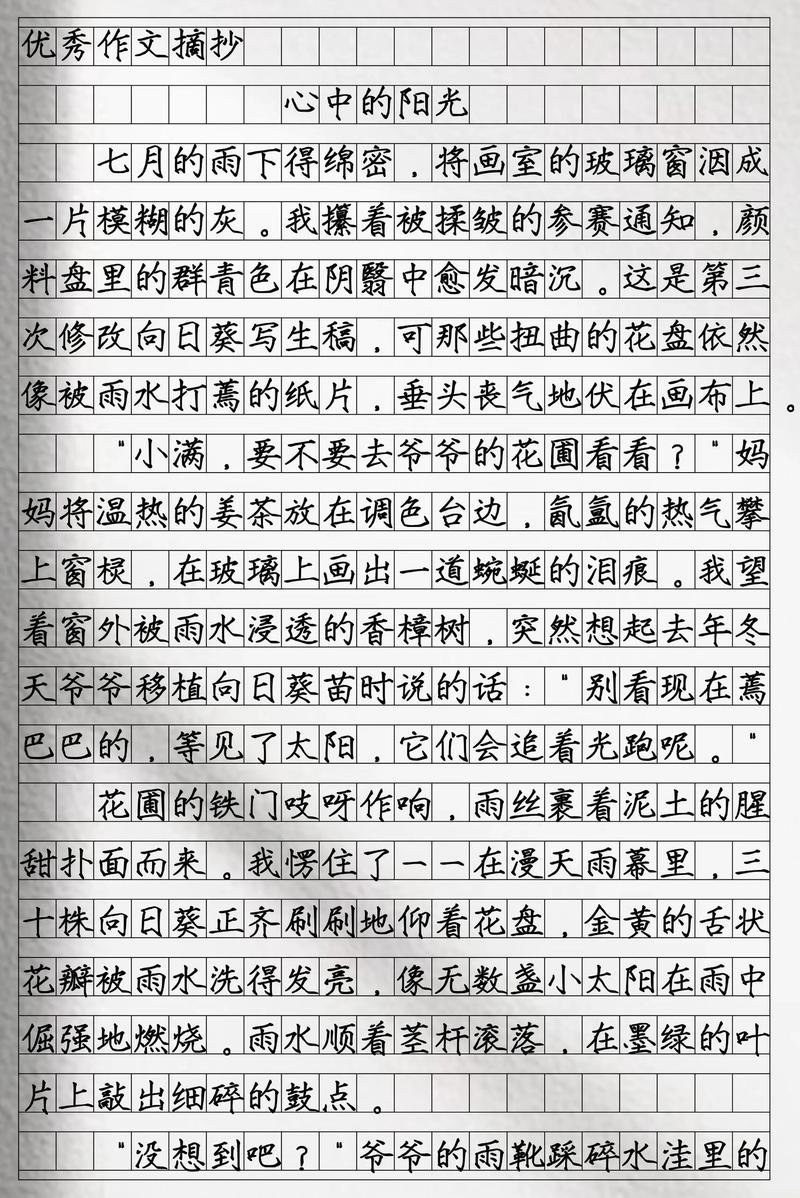 优秀作文摘抄
心中的阳光
七月的雨下得绵密，将画室的玻璃窗洇成
一片模糊的灰。我攥着被揉皱的参赛通知，颜
料盘里的群青色在阴翳中愈发暗沉。这是第三
次修改向日葵写生稿，可那些扭曲的花盘依然
像被雨水打蔫的纸片，垂头丧气地伏在画布上。
"小满，要不要去爷爷的花圃看看？"妈
妈将温热的姜茶放在调色台边，氤氲的热气攀
上窗棂，在玻璃上画出一道蜿蜒的泪痕。我望
着窗外被雨水浸透的香樟树，突然想起去年冬
天爷爷移植向日葵苗时说的话："别看现在蔫
巴巴的，等见了太阳，它们会追着光跑呢。"
花圃的铁门吱呀作响，雨丝裹着泥土的腥
甜扑面而来。我愣住了——在漫天雨幕里，三
十株向日葵正齐刷刷地仰着花盘，金黄的舌状
花瓣被雨水洗得发亮，像无数盏小太阳在雨中
倔强地燃烧。雨水顺着茎杆滚落，在墨绿的叶
片上敲出细碎的鼓点。
"没想到吧？"爷爷的雨靴踩碎水洼里的